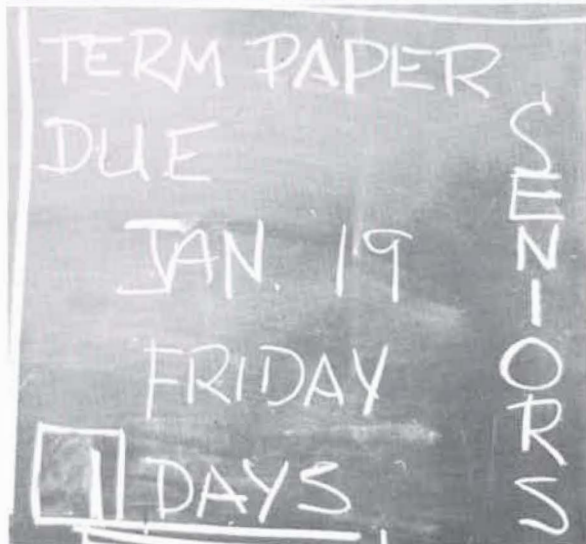 TERM PAPER
DUE
JAN. 19
FRIDAY
1 DAYS
SENIORS